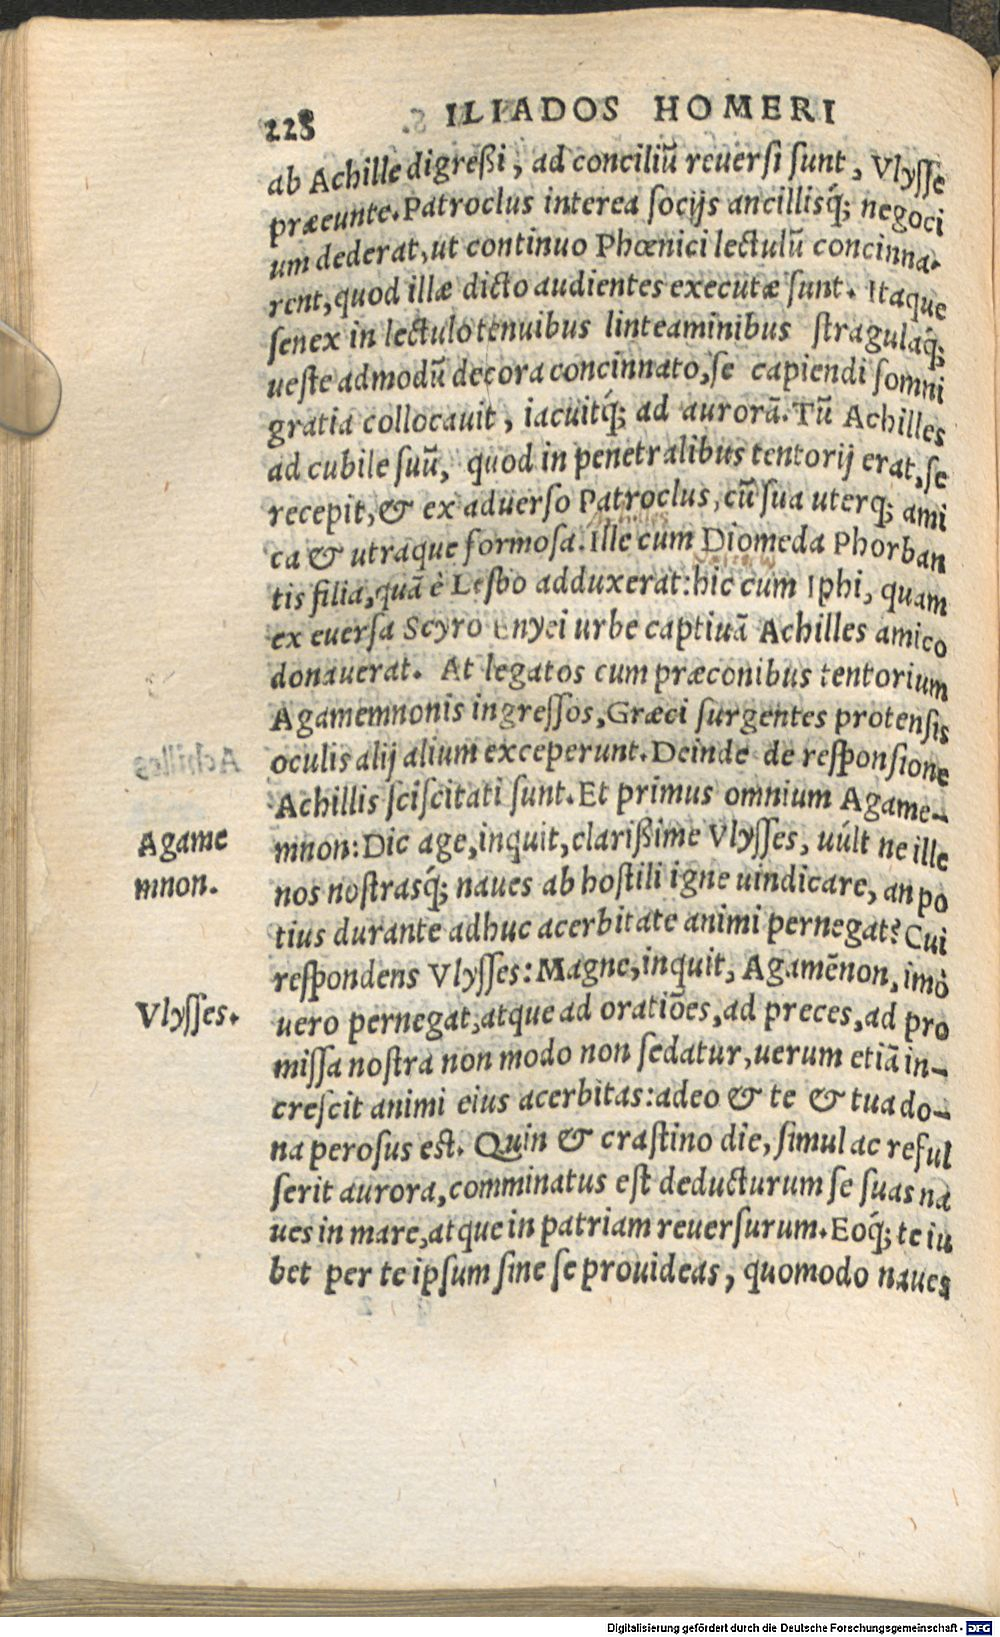 228 ILIADOS HOMERI
ab Achille digreßi, ad conciliũ reuersi sunt, Vlysse
præeunte. Patroclus interea socijs ancillisq́; negoci
um dederat, ut continuo Phœnici lectulũ concinna-
rent, quod illæ dicto audientes executæ sunt. Itaque
senex in lectulo tenuibus linteaminibus stragulaq́;
ueste admodũ decora concinnato, se capiendi somni
gratia collocauit, iacuitq́; ad aurorã. Tũ Achilles
ad cubile suũ, quod in penetralibus tentorij erat, se
recepit, & ex aduerso Patroclus, cũ sua uterq; ami
ca & utraque formosa. Ille cum Diomeda Phorban
Achilles
tis filia, quã è Lesbo adduxerat: hic cum Iphi, quam
ex euersa Scyro Enyei urbe captiuã Achilles amico
donauerat. At legatos cum præconibus tentorium
Agamemnonis ingressos, Græci surgentes protensis
oculis alij alium exceperunt. Deinde de responsione
Achillis sciscitati sunt. Et primus omnium Agame-
Agame
mnon: Dic age, inquit, clarißime Vlysses, uúlt ne ille
mnon.
nos nostrasq́; naues ab hostili igne uindicare, an po
tius durante adhuc acerbitate animi pernegat? Cui
respondens Vlysses: Magne, inquit, Agamẽnon, imò
Vlysses.
uero pernegat, atque ad oratiões, ad preces, ad pro
missa nostra non modo non sedatur, uerum etiã in-
crescit animi eius acerbitas: adeo & te & tua do-
na perosus est. Quin & crastino die, simul ac reful
serit aurora, comminatus est deducturum se suas na
ues in mare, atque in patriam reuersurum. Eoq́; te iu
bet per te ipsum sine se prouideas, quomodo naues
Digitalisierung gefördert durch die Deutsche Forschungsgemeinschaft - DFG